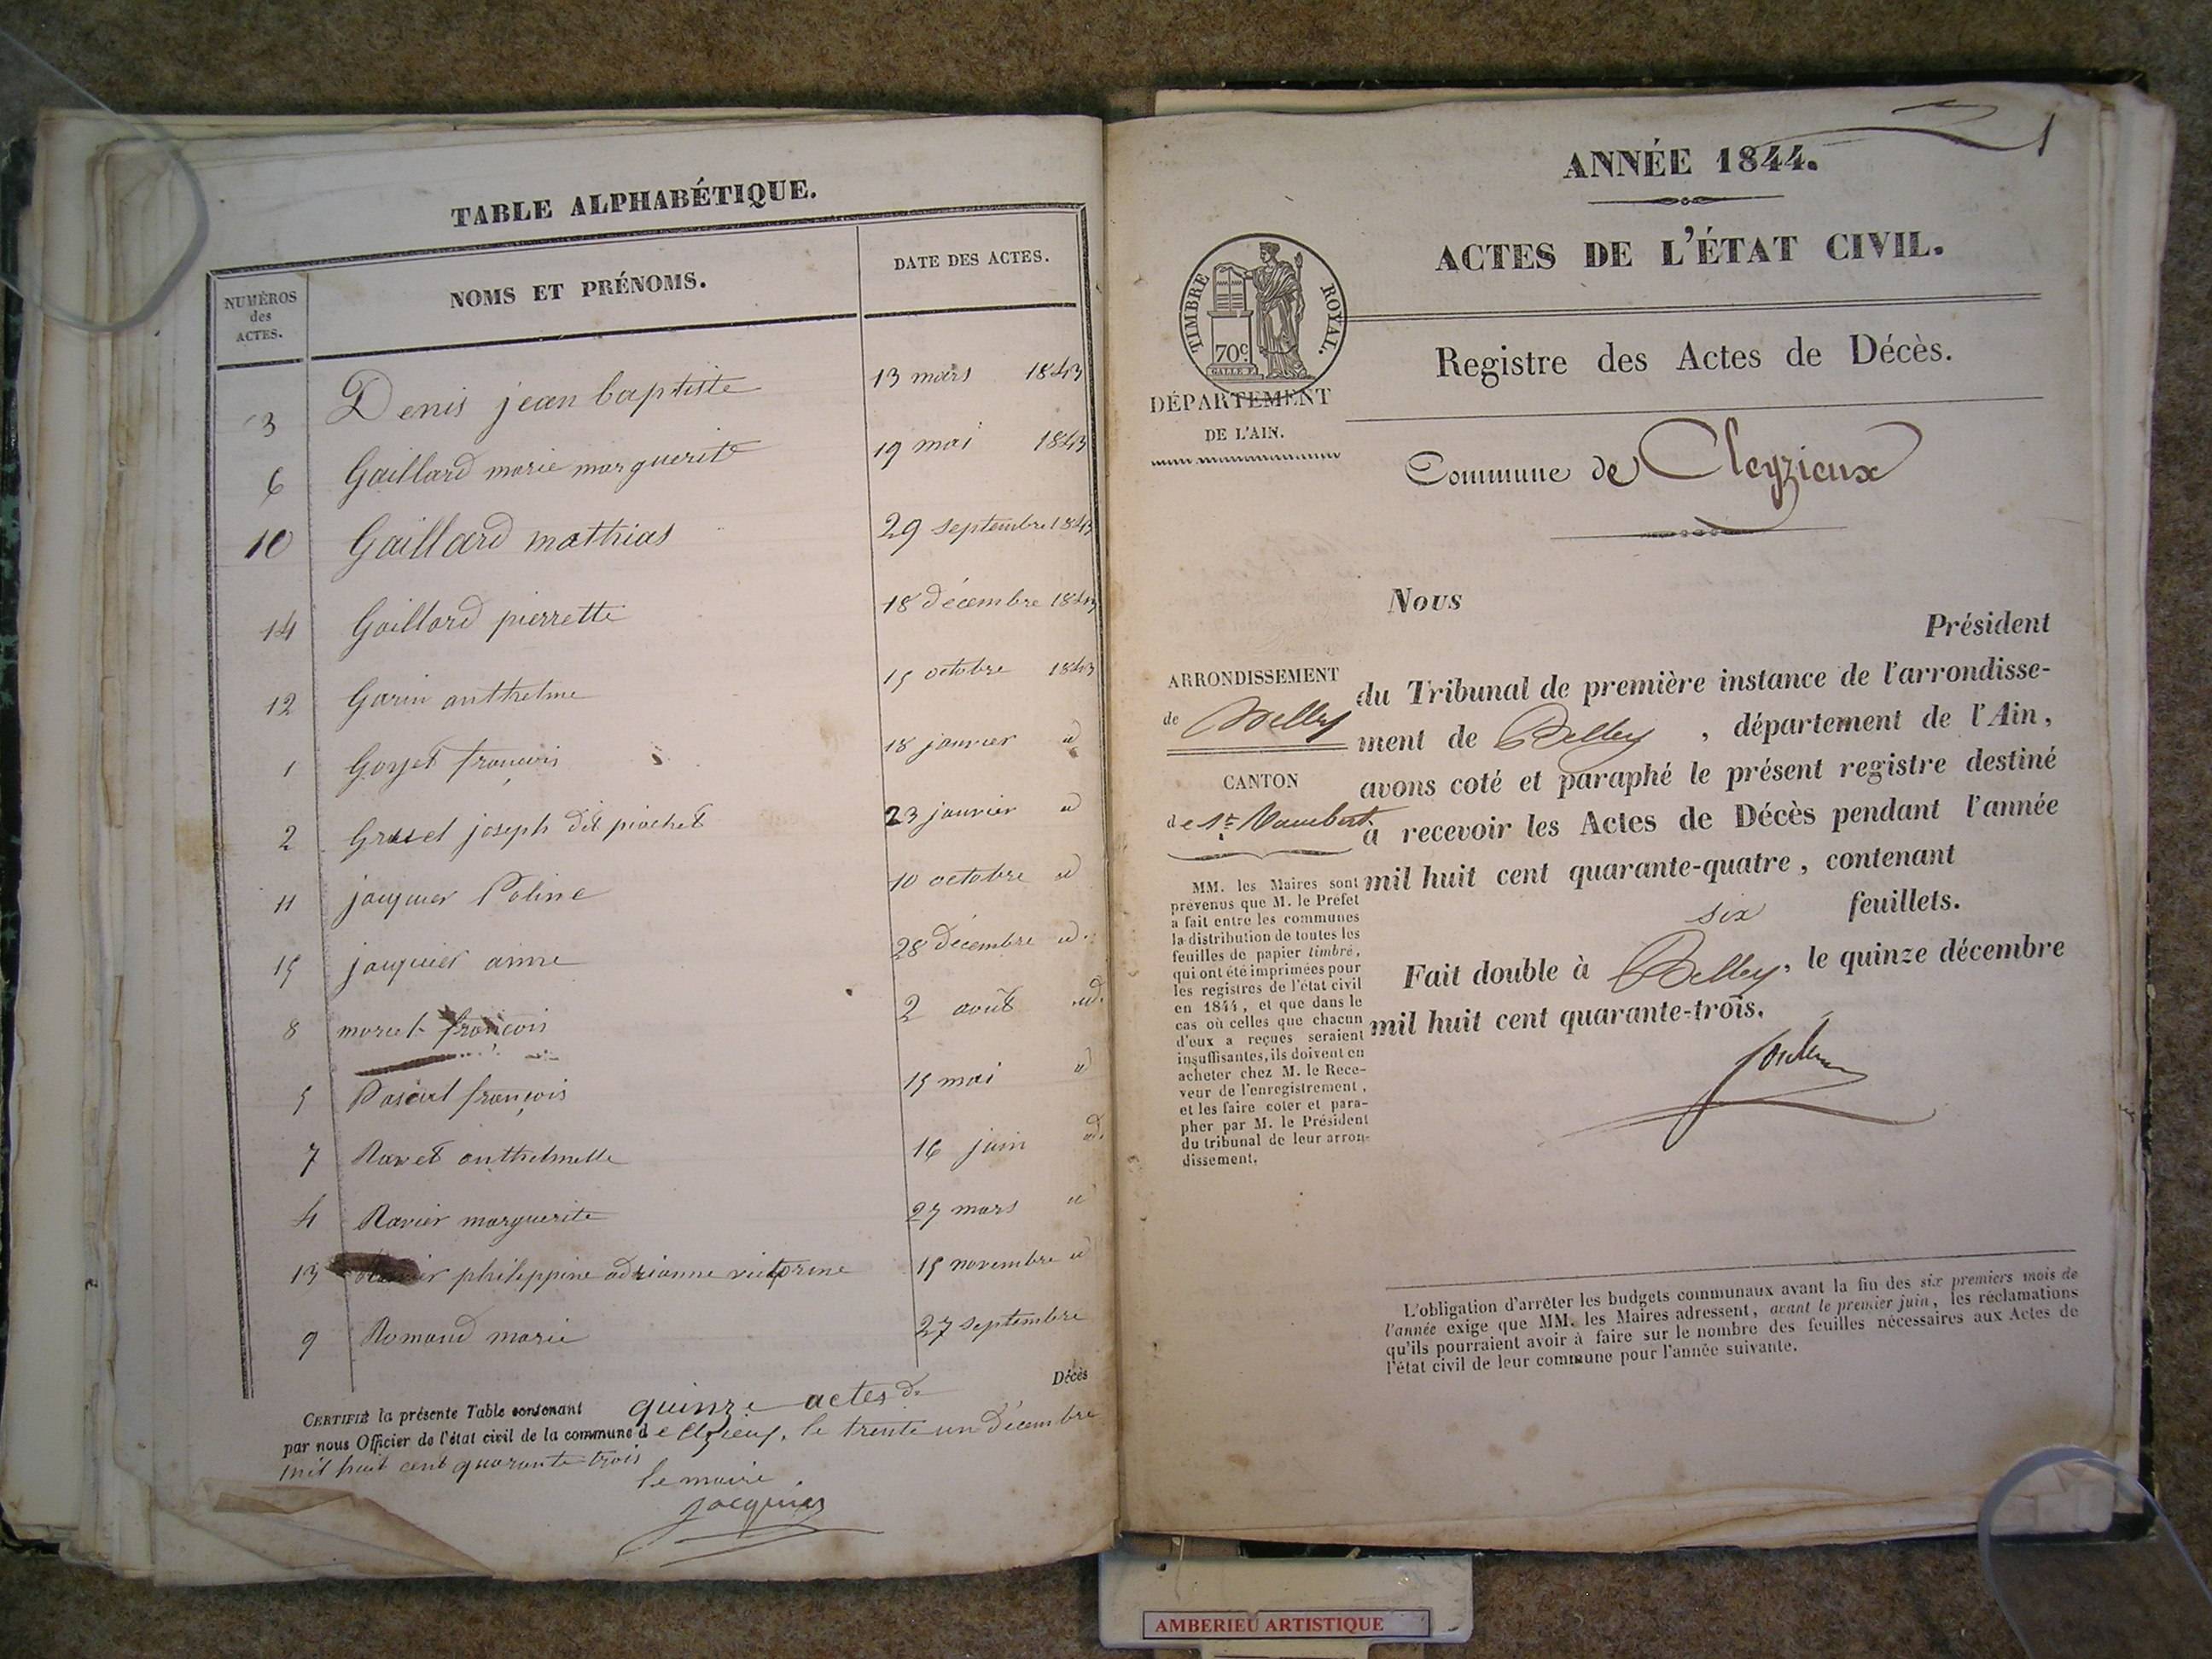 TABLE ALPHABÉTIQUE.
NUMÉROS des ACTES.
NOMS ET PRÉNOMS.
DATE DES ACTES.
3 Denis jean baptiste 13 mars 1843
6 Gaillard marie marguerite 19 mai 1843
10 Gaillard mathias 29 septembre 1843
14 Gaillard pierrette 18 décembre 1843
12 Garin anthelme 15 octobre 1843
1 Gorjet françois 18 janvier id
2 joseph dit piochet 23 janvier id
11 jacquier Poline 10 octobre id
15 jacquier anne 28 décembre id.
8 françois 2 août id.
5 Pascal françois 15 mai id
7 Ravet anthelmette 16 juin id.
4 Ravier marguerite 27 mars id
13 philippine adrianne victorine 15 novembre id
9 Romand marie 27 septembre
CERTIFIÉ la présente Table contenant quinze actes de Décès
par nous Officier de l'état civil de la commune de le trente un Décembre
mil huit cent quarante trois
le maire
jacquier
1
ANNÉE 1844.
ACTES DE L'ÉTAT CIVIL.
TIMBRE ROYAL.
70c
GALLE F.
Registre des Actes de Décès.
DÉPARTEMENT
DE L'AIN.
Commune de Cleyzieux
Nous
Président
ARRONDISSEMENT
de Belley
du Tribunal de première instance de l'arrondisse-
ment de Belley , département de l'Ain,
CANTON
de St Rambert
avons coté et paraphé le présent registre destiné
à recevoir les Actes de Décès pendant l'année
mil huit cent quarante-quatre, contenant
six feuillets.
Fait double à Belley, le quinze décembre
mil huit cent quarante-trois.
MM. les Maires sont
prévenus que M. le Préfet
a fait entre les communes
la distribution de toutes les
feuilles de papier timbré,
qui ont été imprimées pour
les registres de l'état civil
en 1844, et que dans le
cas où celles que chacun
d'eux a reçues seraient
insuffisantes, ils doivent en
acheter chez M. le Rece-
veur de l'enregistrement,
et les faire coter et para-
pher par M. le Président
du tribunal de leur arron-
dissement.
L'obligation d'arrêter les budgets communaux avant la fin des six premiers mois de
l'année exige que MM. les Maires adressent, avant le premier juin, les réclamations
qu'ils pourraient avoir à faire sur le nombre des feuilles nécessaires aux Actes de
l'état civil de leur commune pour l'année suivante.
AMBERIEU ARTISTIQUE